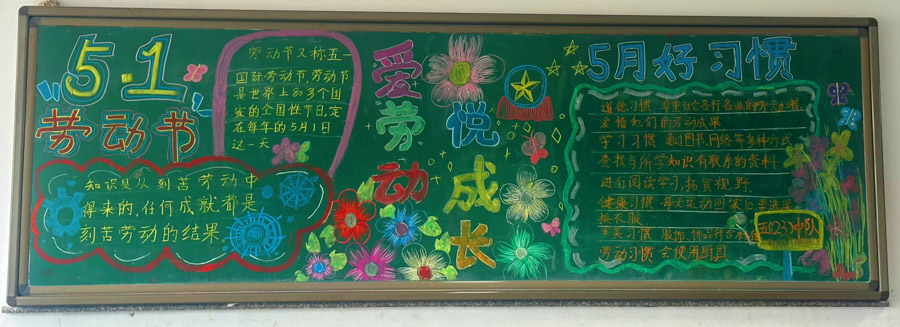 5.1
劳动节
劳动节又称五一
国际劳动节,劳动节
是世界上80多个国
家的全国性节日,定
在每年的5月1日
这一天
知识只从刻苦劳动中
得来的,任何成就都是
刻苦劳动的结果.
爱劳动
悦成长
5月好习惯
道德习惯 尊重社会各行各业的劳动者,
爱惜他们的劳动成果
学习习惯 通过图书,网络等多种方式
查找与所学知识有联系的资料
进行阅读学习,拓宽视野.
健康习惯 每天运动回家后要洗澡
换衣服
审美习惯 服饰,
劳动习惯 会使用厨具
五(23)中队